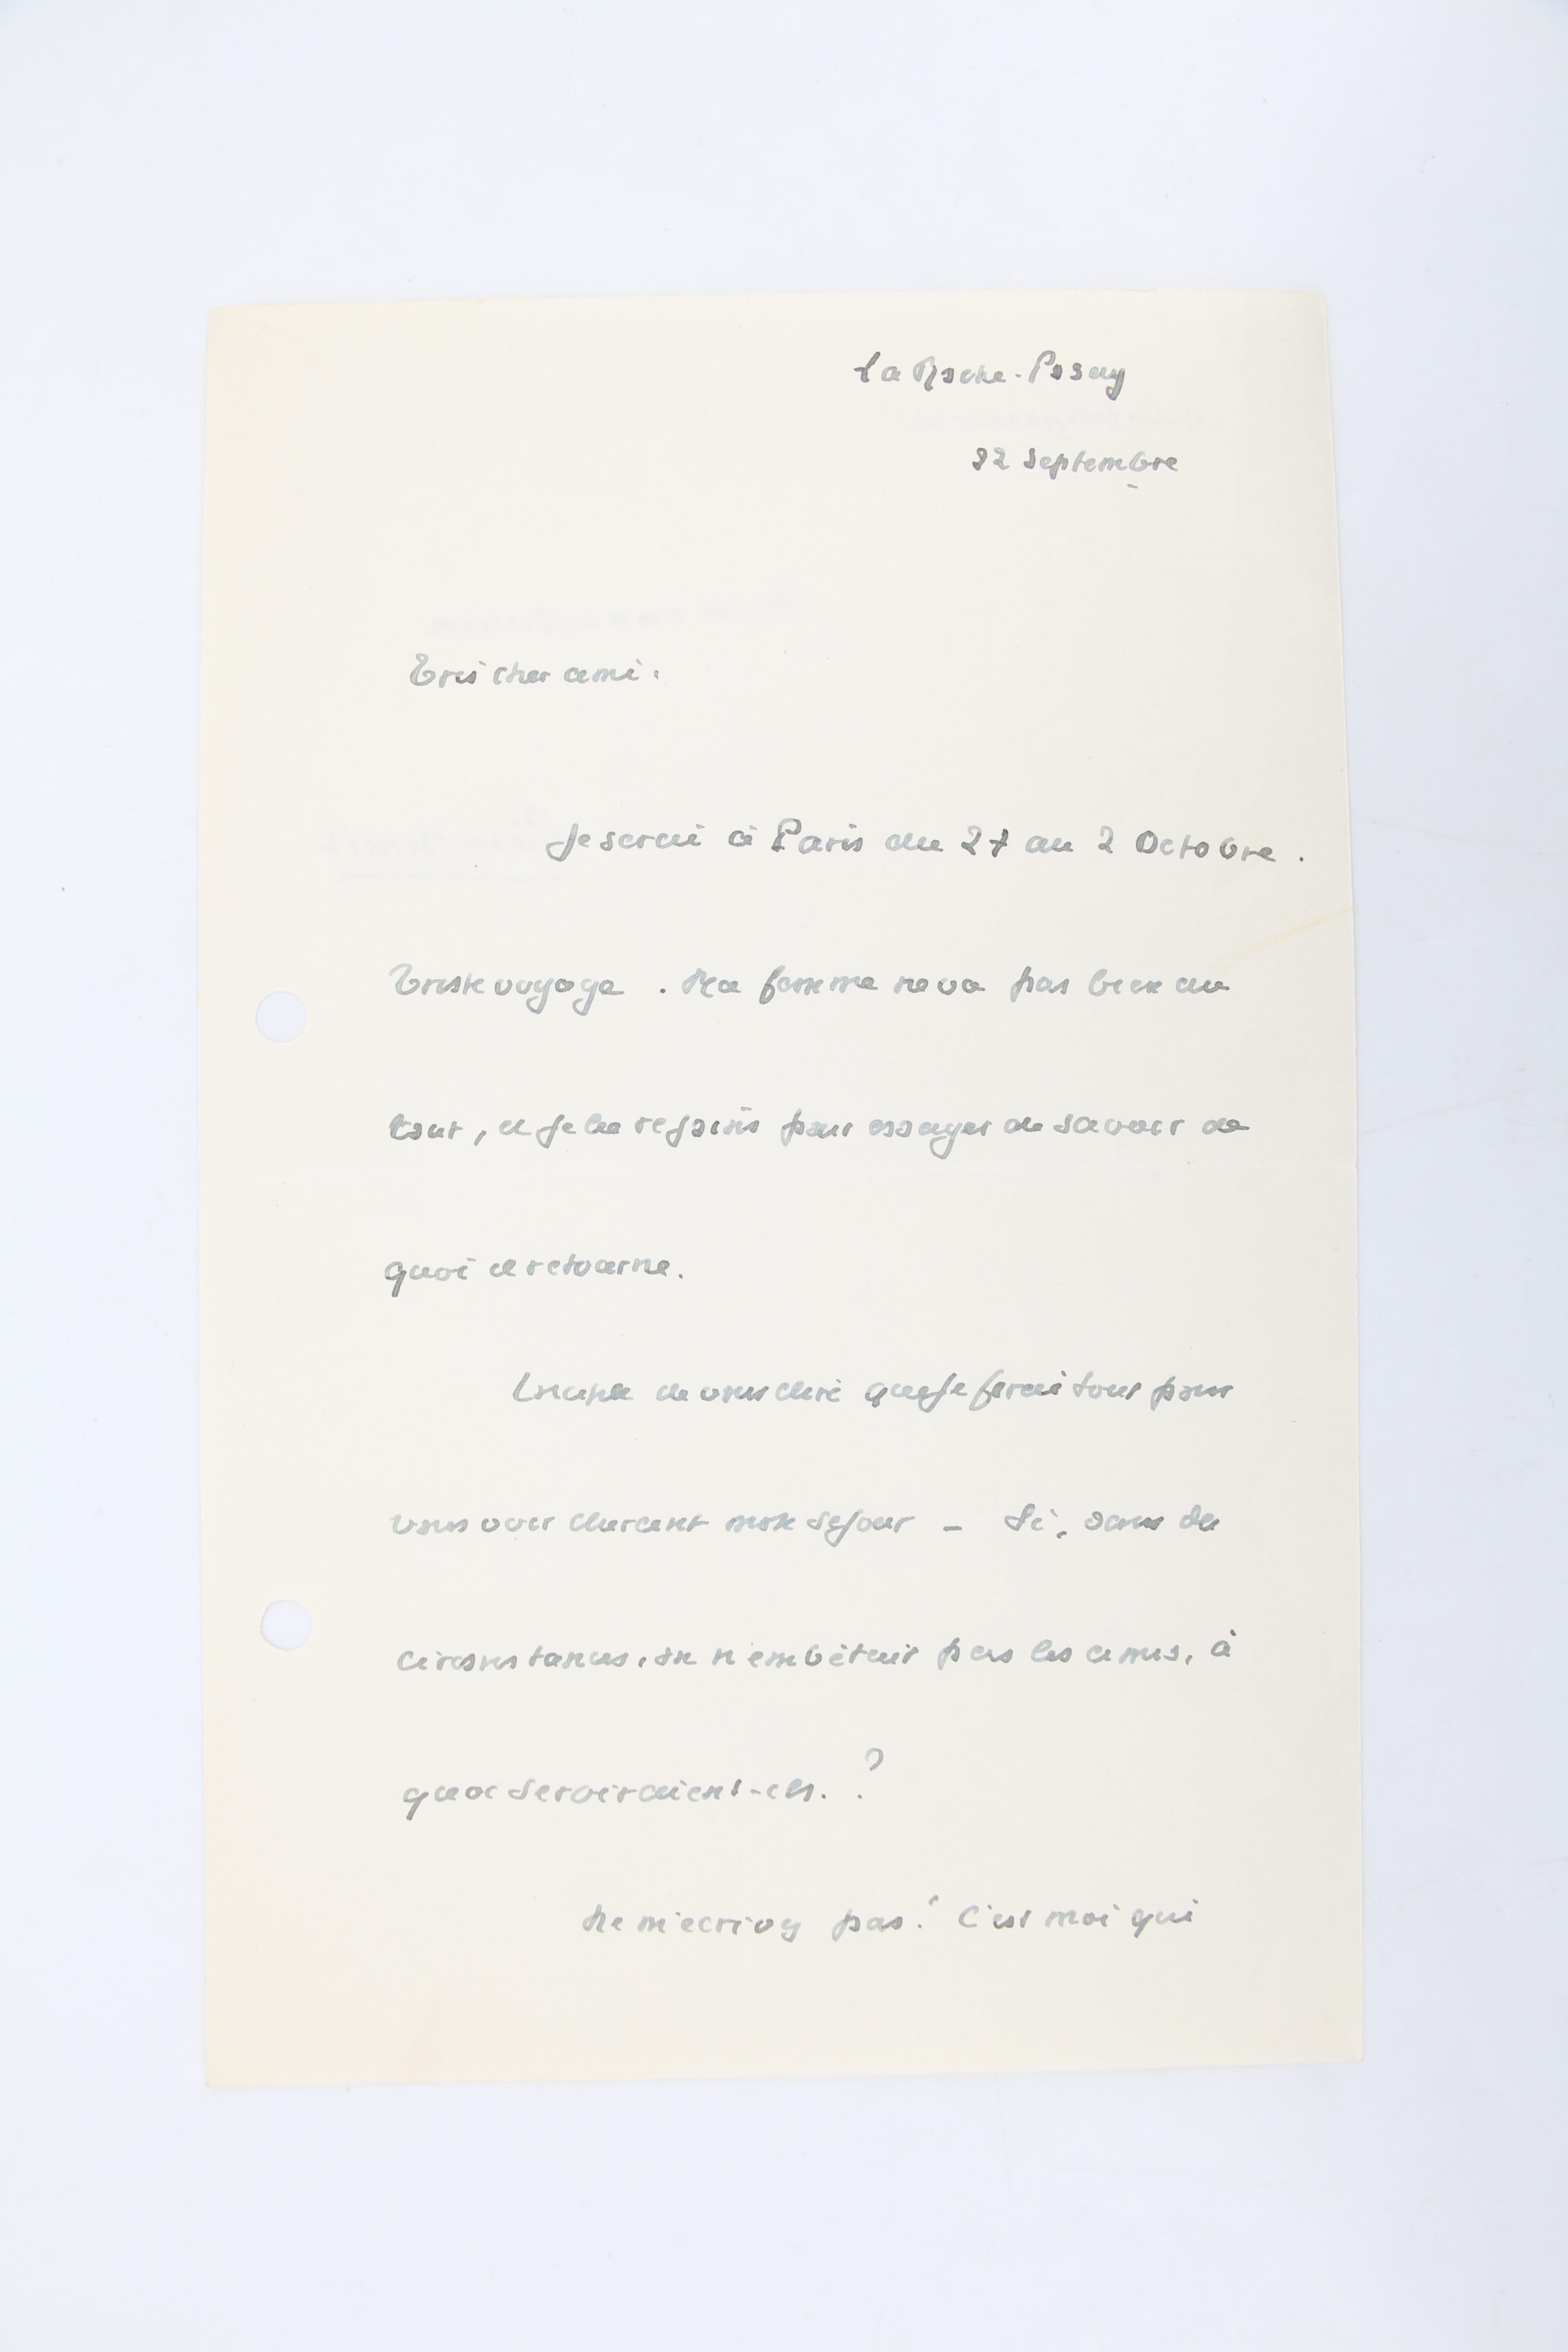 La Roche-Posay
22 Septembre
Très cher ami.
Je serai à Paris du 27 au 2 Octobre.
Triste voyage. Ma femme ne va pas bien du
tout, et je la rejoins pour essayer de savoir de
quoi il retourne.
Inutile de vous dire que je ferai tout pour
vous voir durant mon séjour – Si, dans de
circonstances, on n'embêtait pas les amis, à
quoi serviraient-ils. ?
Ne m'écrivez pas. C'est moi qui